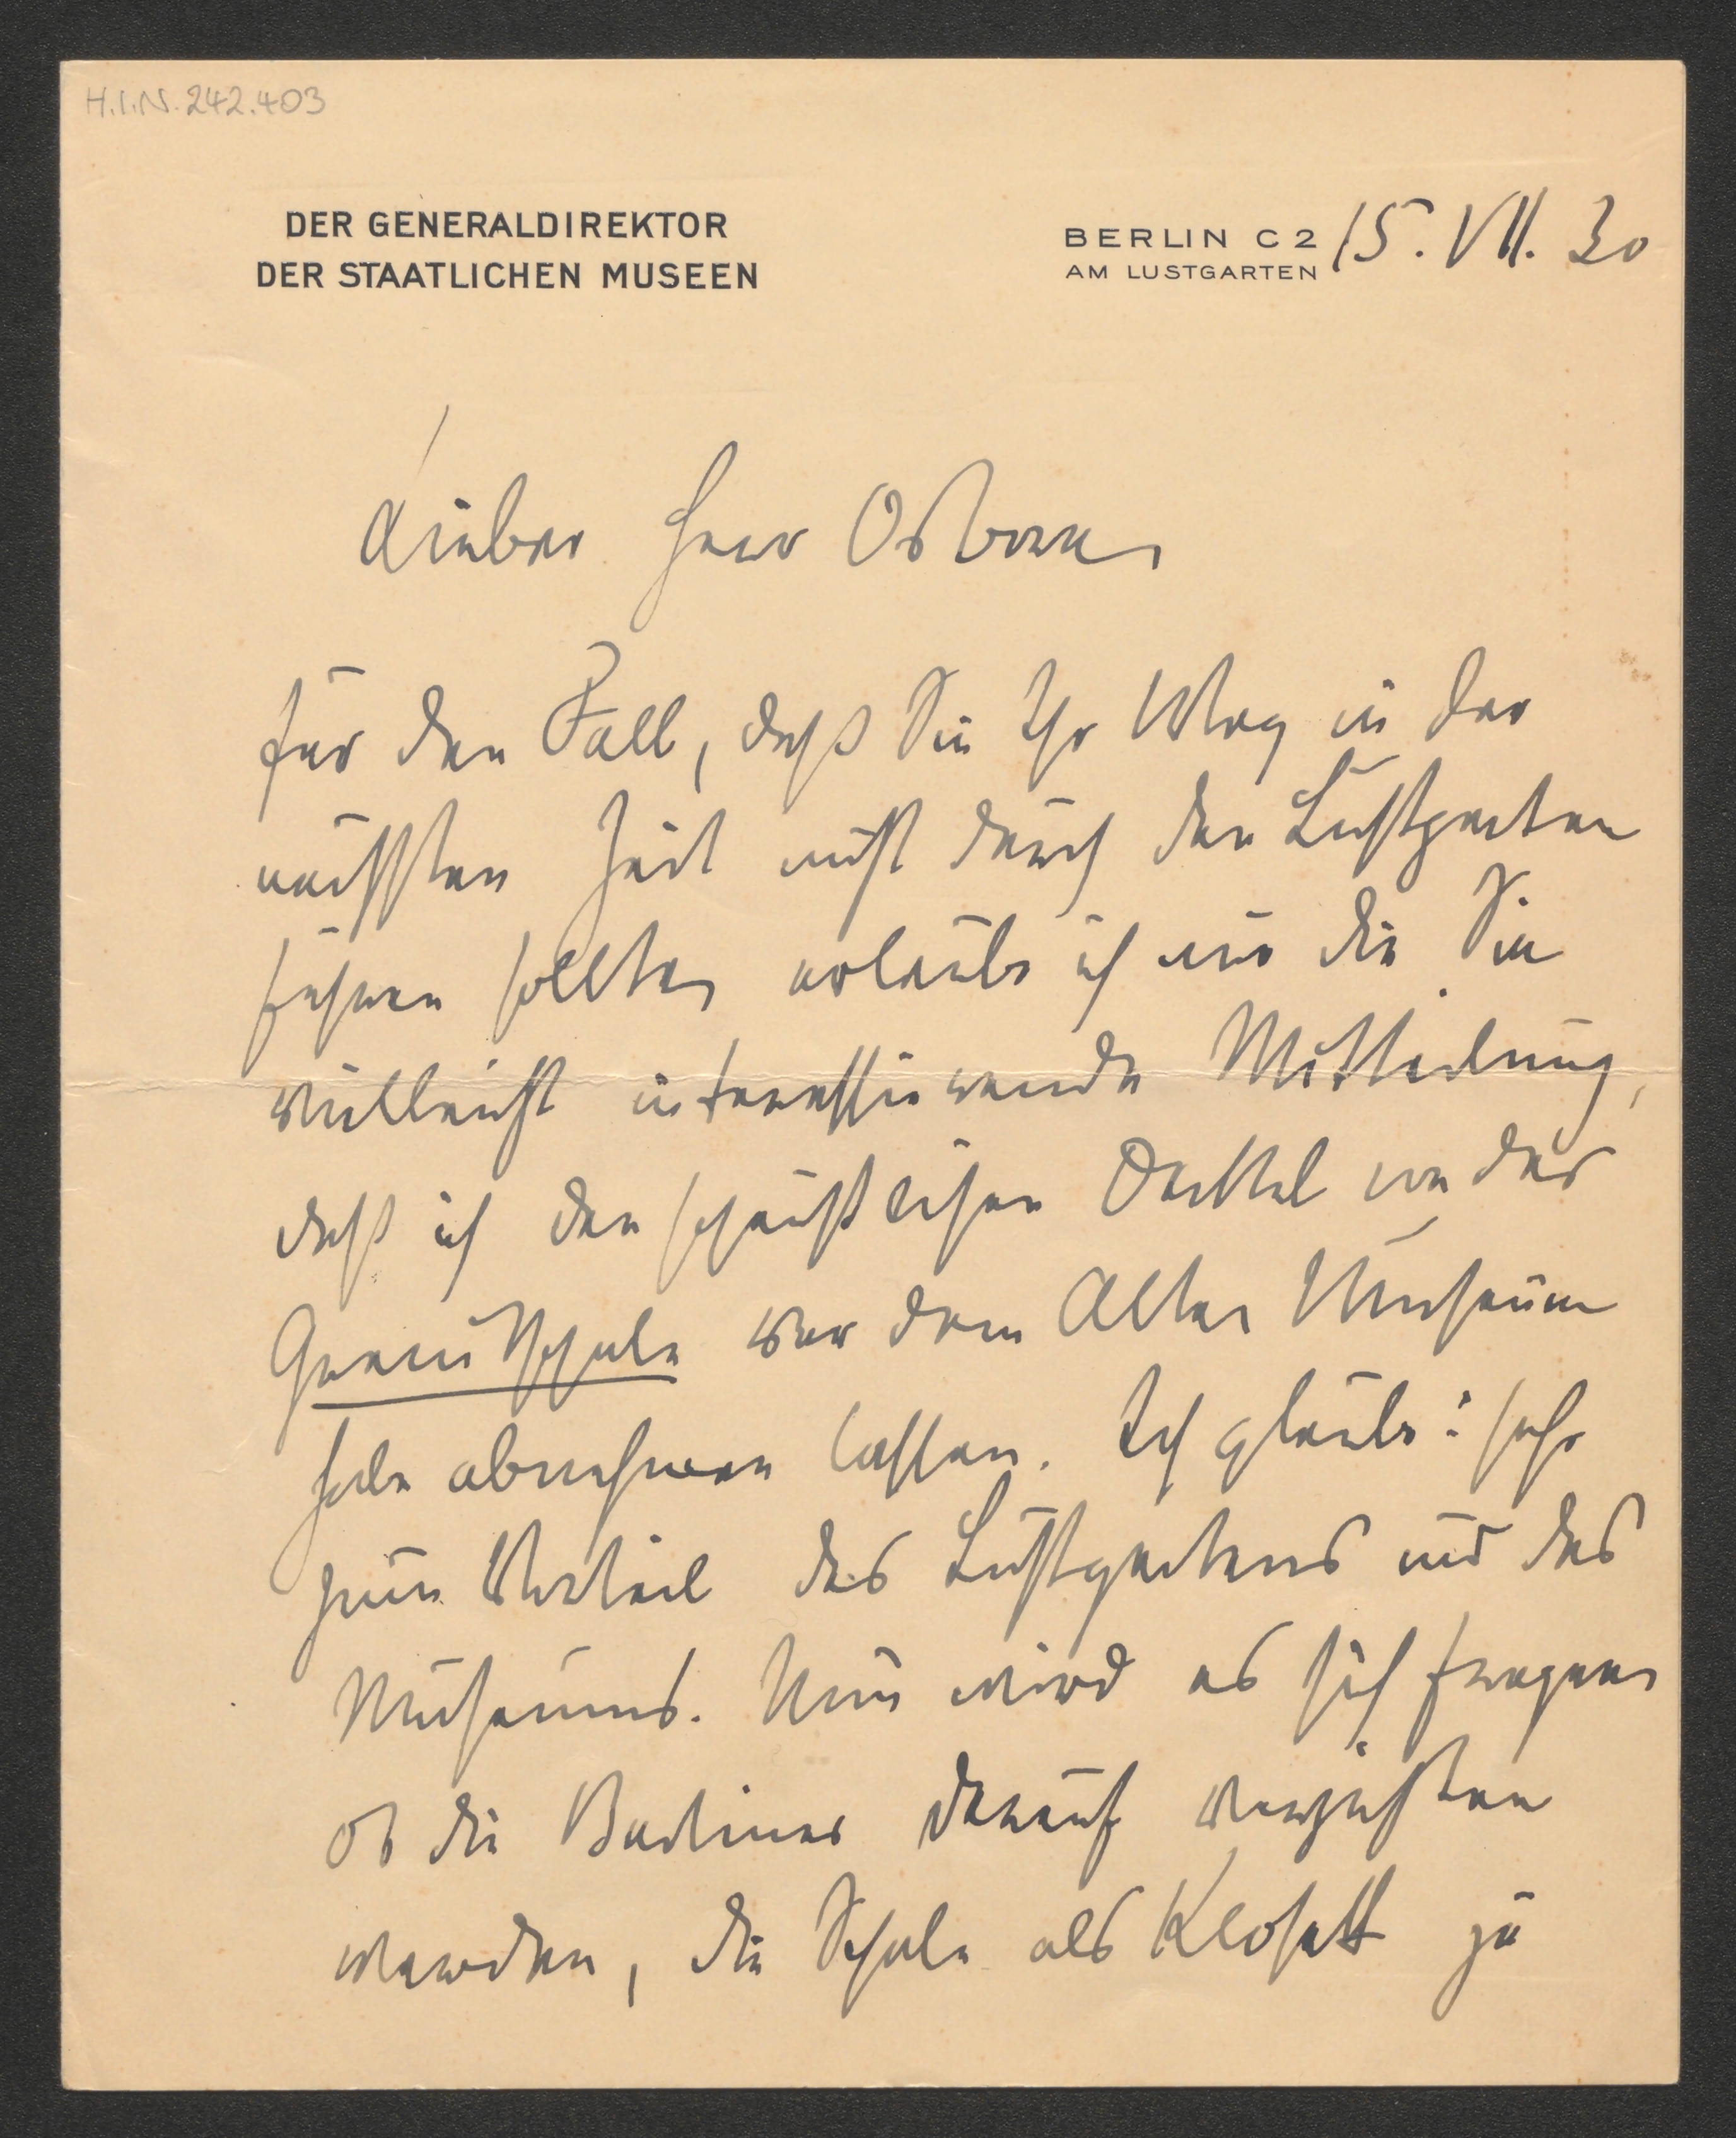 H.I.N. 242.403
DER GENERALDIREKTOR
DER STAATLICHEN MUSEEN
BERLIN C 2
AM LUSTGARTEN
15. VII. 30
Lieber Herr Osborn
für den Fall, daß Sie Ihr Weg in der
nächsten Zeit nicht durch den Lustgarten
führen sollte, erlaube ich mir die Sie
vielleicht interessierende Mitteilung,
daß ich den scheußlichen Deckel von der
Granitschale vor dem Alten Museum
habe abnehmen lassen. Ich glaube: sehr
zum Vorteil des Lustgartens und des
Museums. Nun wird es sich fragen
ob die Berliner darauf verzichten
werden, die Schale als Klosett zu